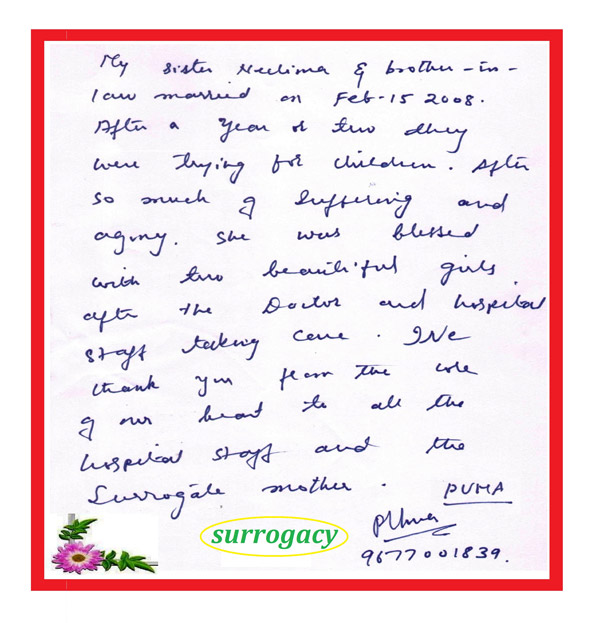 My sister Neelima & brother-in-
law married on Feb-15 2008.
After a year or two they
were trying for children. After
so much of suffering and
agony. she was blessed
with two beautiful girls
after the Doctor and hospital
staff taking care. We
thank you from the core
of our heart to all the
hospital staff and the
Surrogate mother.
PUMA
surrogacy
9677001839.